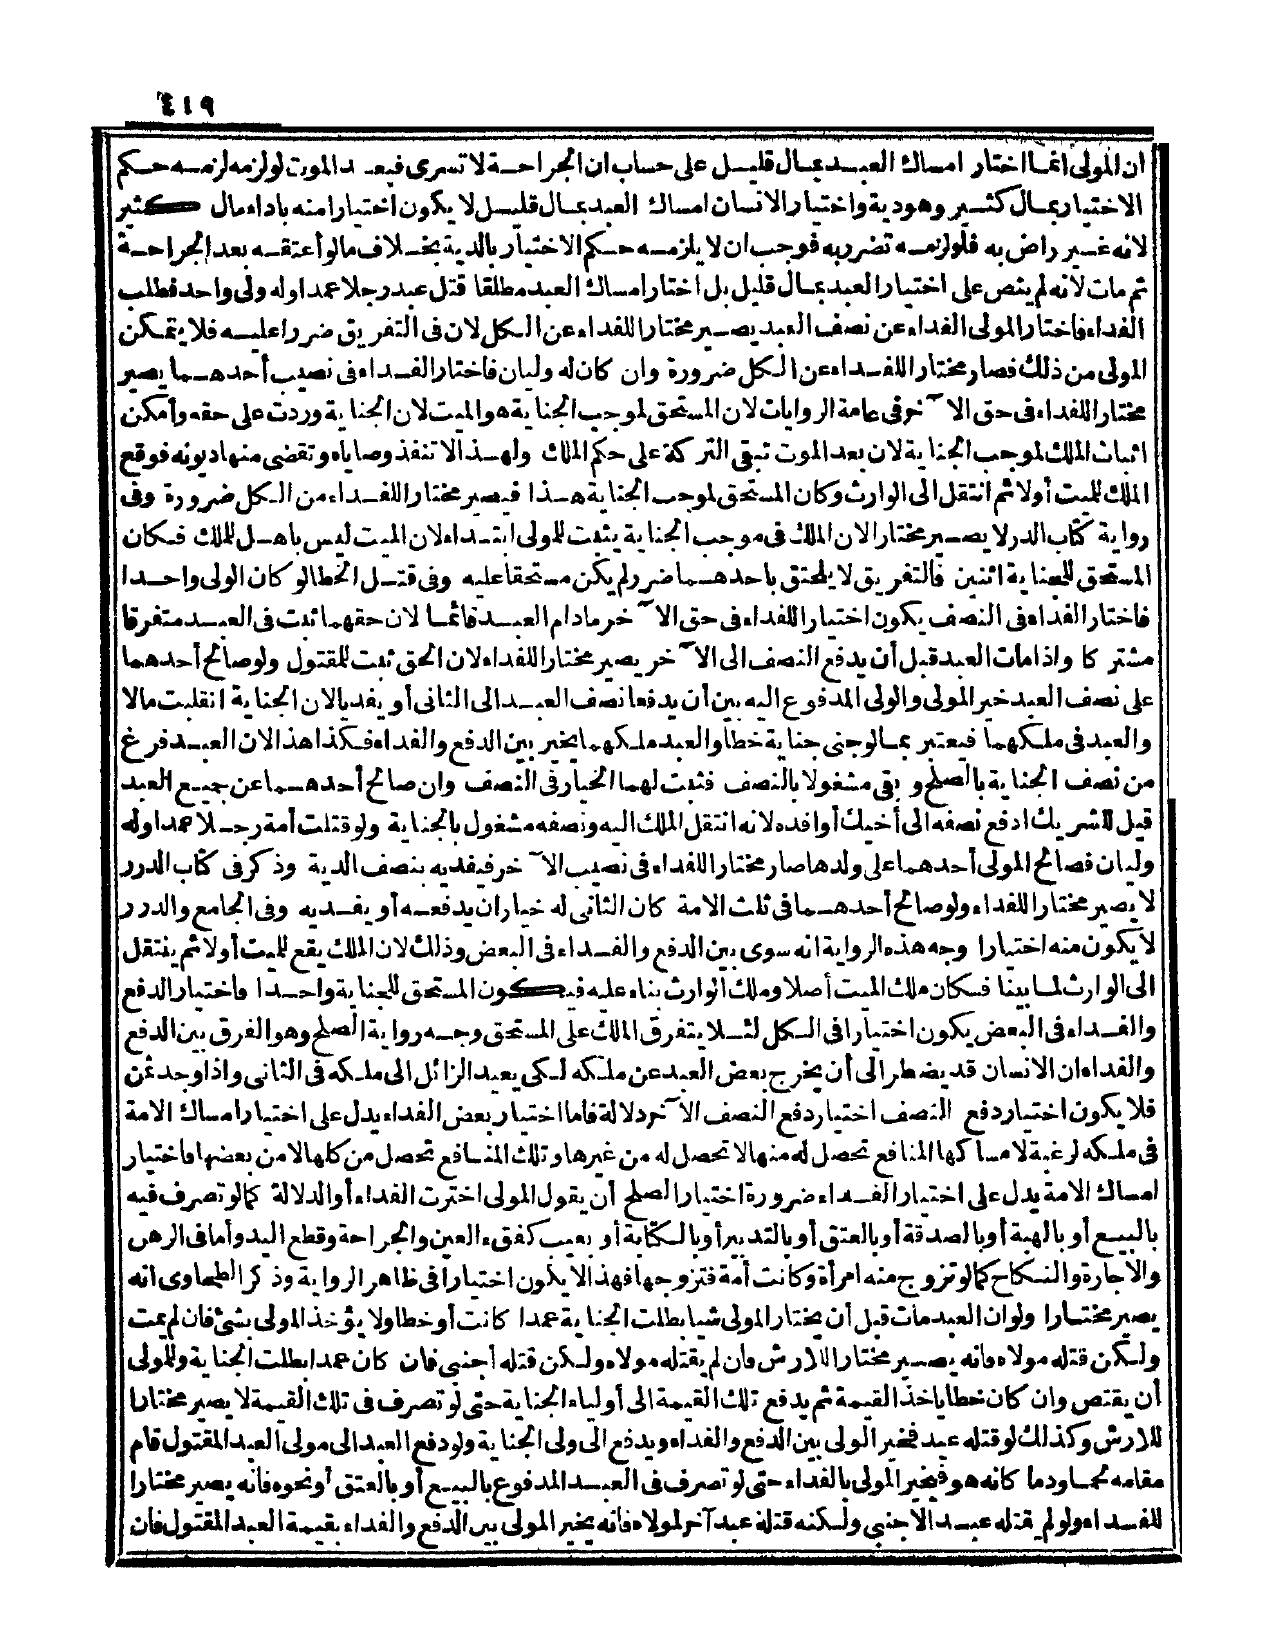 ٤١٩
ان المولى انما اختار امساك العبد بمال قليل على حساب ان الجراحة لا تسرى فبعد الموت لو لزمه لزمه حكم
الاختيار بمال كثير وهو دية واختيار الانسان امساك العبد بمال قليل لا يكون اختيارا منه باداء مال كثير
لانه غير راض به فلو لزمه تضرر به فوجب ان لا يلزمه حكم الاختيار بالدية بخلاف مالو أعتقه بعد الجراحة
ثم مات لانه لم ينص على اختيار العبد بمال قليل بل اختار امساك العبد مطلقا قتل عبد رجلا عمدا وله ولى واحد فطلب
الفداء فاختار المولى الفداء عن نصف العبد يصير مختارا للفداء عن الكل لان فى التفريق ضررا عليه فلا يتمكن
المولى من ذلك فصار مختارا للفداء عن الكل ضرورة وان كان له وليان فاختار الفداء فى نصيب أحدهما يصير
مختارا للفداء فى حق الآخر فى عامة الروايات لان المستحق لموجب الجناية هو الميت لان الجناية وردت على حقه وأمكن
اثبات الملك لموجب الجناية لان بعد الموت تبقى التركة على حكم الملك ولهذا لا تنفذ وصاياه وتقضى منها ديونه فوقع
الملك للميت أولا ثم انتقل الى الوارث وكان المستحق لموجب الجناية هذا فيصير مختارا للفداء من الكل ضرورة وفى
رواية كتاب الدرر لا يصير مختارا لان الملك فى موجب الجناية يثبت للمولى ابتداء لان الميت ليس باهل للملك فكان
المستحق للجناية اثنين فالتفريق لا يلحق باحدهما ضرر لم يكن مستحقا عليه وفى قتل الخطا لو كان الولى واحدا
فاختار الفداء فى النصف يكون اختيارا للفداء فى حق الآخر مادام العبد قائما لان حقهما ثبت فى العبد متفرقا
مشتركا واذا مات العبد قبل أن يدفع النصف الى الآخر يصير مختارا للفداء لان الحق ثبت للمقتول ولو صالح أحدهما
على نصف العبد خير المولى والولى المدفوع اليه بين أن يدفعا نصف العبد الى الثانى أو يفديا لان الجناية انقلبت مالا
والعبد فى ملكهما فيعتبر بمالو جنى جناية خطأ والعبد ملكهما يخير بين الدفع والفداء فكذا هذا لان العبد فرغ
من نصف الجناية بالصلح وبقى مشغولا بالنصف فثبت لهما الخيار فى النصف وان صالح أحدهما عن جميع العبد
قيل للشريك ادفع نصفه الى أخيك أو افده لانه انتقل الملك اليه ونصفه مشغول بالجناية ولو قتلت أمة رجلا عمدا وله
وليان فصالح المولى أحدهما على ولدها صار مختارا للفداء فى نصيب الآخر فيفديه بنصف الدية وذكر فى كتاب الدرر
لا يصير مختارا للفداء ولو صالح أحدهما فى ثلث الامة كان الثانى له خيار ان يدفعه أو يفديه وفى الجامع والدرر
لا يكون منه اختيارا وجه هذه الرواية انه سوى بين الدفع والفداء فى البعض وذلك لان الملك يقع للميت أولا ثم ينتقل
الى الوارث لما بينا فكان ملك الميت أصلا وملك الوارث بناء عليه فيكون المستحق للجناية واحدا فاختيار الدفع
والفداء فى البعض يكون اختيارا فى الكل لئلا يتفرق الملك على المستحق وجه رواية الصلح وهو الفرق بين الدفع
والفداء ان الانسان قد يضطر الى أن يخرج بعض العبد عن ملكه لكى يعيد الزائل الى ملكه فى الثانى واذا وجد ثمن
فلا يكون اختيار دفع النصف اختيار دفع النصف الآخر دلالة فاما اختيار بعض الفداء يدل على اختيار امساك الامة
فى ملكه لرغبة لامساكها المنافع تحصل له منها لا تحصل له من غيرها وتلك المنافع تحصل من كلها لا من بعضها فاختيار
امساك الامة يدل على اختيار الفداء ضرورة اختيارا لصلح أن يقول المولى اخترت الفداء أو الدلالة كمالو تصرف فيه
بالبيع أو بالهبة أو بالصدقة أو بالعتق أو بالتدبير أو بالكتابة أو بعيب كفقء العين والجراحة وقطع اليد وأما فى الرهن
والاجارة والنكاح كمالو تزوج منه امرأة وكانت أمة فتزوجها فهذا لا يكون اختيارا فى ظاهر الرواية وذكر الطحاوى انه
يصير مختارا ولو ان العبد مات قبل أن يختار المولى شيا بطلت الجناية عمدا كانت أو خطا ولا يؤخذ المولى بشئ فان لم يمت
ولكن قتله مولاه فانه يصير مختارا للارش فان لم يقتله مولاه ولكن قتله أجنبى فان كان عمدا بطلت الجناية وللمولى
أن يقتص وان كان خطا ياخذ القيمة ثم يدفع تلك القيمة الى أولياء الجناية حتى لو تصرف فى تلك القيمة لا يصير مختارا
للارش وكذلك لو قتله عبد فخير المولى بين الدفع والفداء ويدفع الى ولى الجناية ولو دفع العبد الى مولى العبد المقتول قام
مقامه لحما ودما كانه هو فخير المولى بالفداء حتى لو تصرف فى العبد المدفوع بالبيع أو بالعتق أو نحوه فانه يصير مختارا
للفداء ولو لم يقتله عبد الاجنبى ولكنه قتله عبد آخر لمولاه فانه يخير المولى بين الدفع والفداء بقيمة العبد المقتول فان